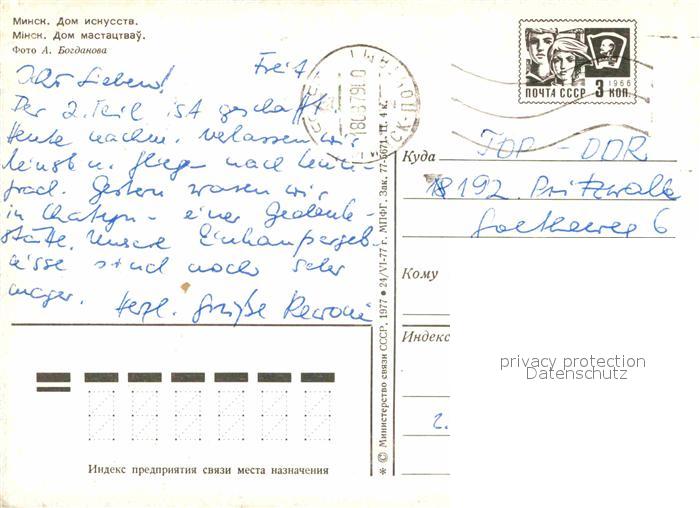 Минск. Дом искусств.
Мінск. Дом мастацтваў.
Фото А. Богданова
Freit.
Ihr Lieben!
Der 2. Teil ist geschafft.
Heute nachm. verlassen wir
Minsk u. fliegen nach Lenin-
grad. Gestern waren wir
in Chatyn - einer Gedenk-
stätte. Unsere Einkaufsergeb-
nisse sind noch sehr
mager.
Herzl. Grüße
ПОЧТА СССР 3 КОП.
1966
180879
Куда
ГДР - DDR
192 Pritzwalk
6
Кому
Индекс
privacy protection
Datenschutz
г.
Индекс предприятия связи места назначения
* © Министерство связи СССР, 1977 • 24/VI-77 г. МПФГ. Зак. 77-5671. Ц. 4 к.